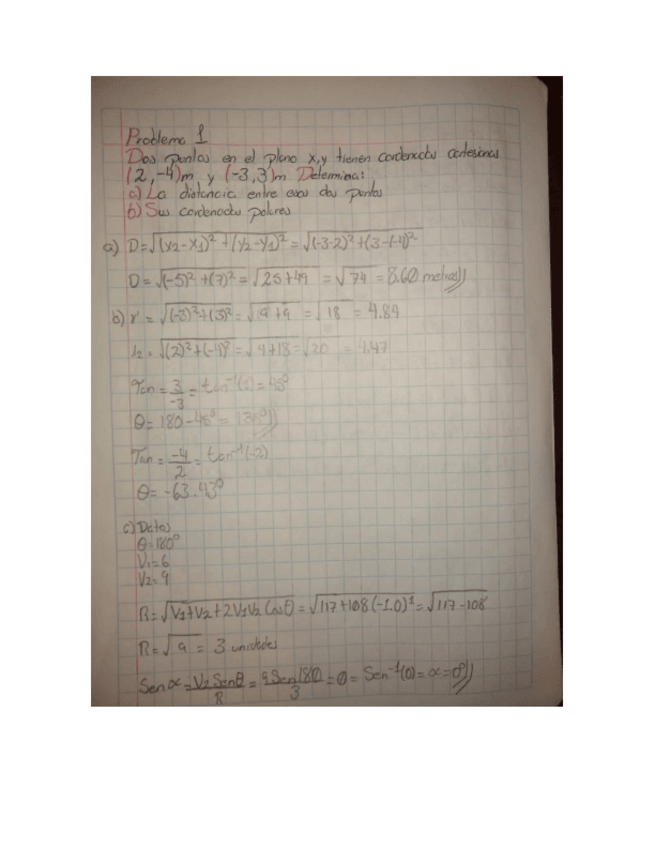 Problema 1
Dos puntos en el plano x,y tienen cordenadas cartesianas
(2,-4)m y (-3,3)m Determina:
a) La distancia entre esos dos puntos
b) Sus cordenadas polares
a) D=√(x2-x1)²+(y2-y1)²=√(-3-2)²+(3-(-4)²
D=√(-5)²+(7)²=√25+49=√74=8.60 metros
b) r=√(-3)²+(3)²=√9+9=√18=4.84
r2=√(2)²+(-4)²=√4+18=√20=4.47
Tan=3/-3=tan⁻¹(1)=45°
θ=180-45°=135°
Tan=-4/2=tan⁻¹(-2)
θ=-63.43°
c) Datos
θ=180°
V1=6
V2=9
R=√V1+V2+2V1V2 Cosθ=√117+108(-1.0)¹=√117-108
R=√9=3 unidades
Sen α=V2 Senθ/R=9 Sen180/3=0=Sen⁻¹(0)=α=0°